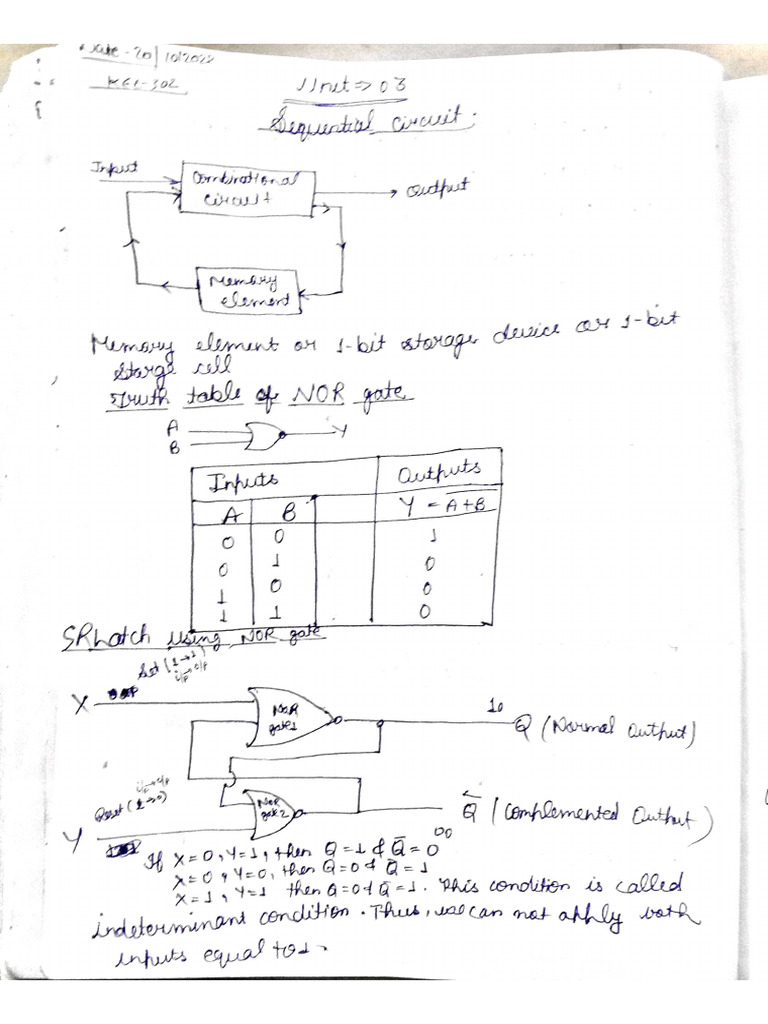 Date - 20/10/2022
KEC-302
Unit => 03
Sequential circuit.
Input
Combinational
circuit
Output
Memory
element
Memory element or 1-bit storage device or 1-bit
starge cell
Truth table of NOR gate
A
B
Y
Inputs Outputs
A B Y = \overline{A+B}
0 0 1
0 1 0
1 0 0
1 1 0
SR Latch using NOR gate
Set (1→1)
i/p→o/p
X
NOR
gate1
10
Q (Normal Output)
i/p→o/p
Reset (1→0)
NOR
gate 2
Y
Q̄ (Complemented Output)
If X=0, Y=1, then Q=1 & Q̄=0
X=0, Y=0, then Q=0 & Q̄=1
X=1, Y=1 then Q=0 & Q̄=1. This condition is called
indeterminant condition. Thus, we can not apply both
inputs equal to 1.